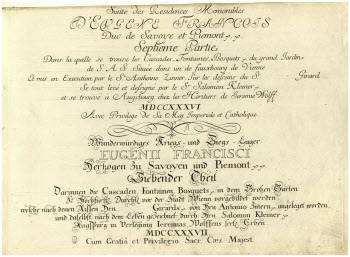 Suitte des Residences Memorables
D'EUGENE FRANCOIS
Duc de Savoye et Piemont
Septieme Partie
Dans la quelle se trouve les Cascades, Fontaines, Bosquets, du grand Jardin
de S. A. S. Située dans un de fauxbourg de Vienne
Et mis en Execution par le Sr Anthoine Zinner, Sur les desseins du Sr Girard
Se tout levé et dessigné par le Sr Salomon Kleiner,
et se trouve a Augsbourg chez les Heritiers de Jeremie Wolff
MDCCXXXVI
Avec Privilege de Sa Maj. Imperiale et Catholique
Wunderwürdiges Kriegs- und Siegs-Lager
EUGENII FRANCISCI
Hertzogen zu Savoyen und Piemont
Siebender Theil
Darinnen die Cascaden, Fontainen, Bosquets, in dem Großen Garten
Sr Hochfürstl. Durchl. vor der Stadt Wienn vorgebildet werden
welche nach denen Rissen Girards, von Anton Zinern, angeleget worden
und daselbst nach dem Leben gezeichnet durch Salomon Kleiner,
Augspurg in Verlegung Jeremias Wolffens seel. Erben
MDCCXXXVII
Cum Gratia et Privilegio Sacr. Cæs. Majest